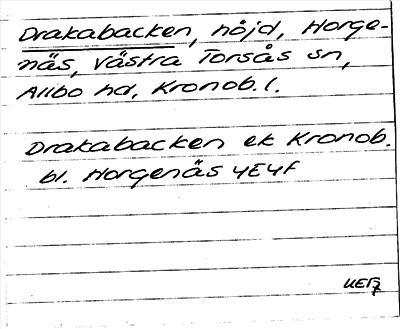 Drakabacken, höjd, Horge-
näs, Västra Torsås sn,
Allbo hd, Kronob. l.
Drakabacken ek Kronob.
bl. Horgenäs 4E4f